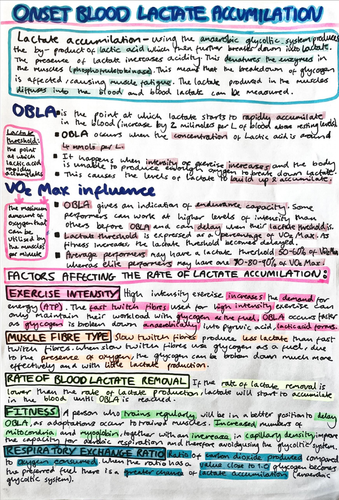 ONSET BLOOD LACTATE ACCUMULATION
Lactate accumulation - using the anaerobic glycolitic system produces
the by-product of lactic acid which then further breaks down into lactate.
The presence of lactate increases acidity. This denatures the enzymes in
the muscles (phosphofructokinase). This means that the breakdown of glycogen
is affected, causing muscle fatigue. The lactate produced in the muscles
diffuses into the blood and blood lactate can be measured.
OBLA: is the point at which lactate starts to rapidly accumulate
in the blood (increase by 2 milimoles per L of blood above resting levels)
Lactate
threshold:
the point
at which
lactic acid
rapidly
accumulates
OBLA occurs when the concentration of Lactic acid is around
4 mmols per L.
It happens when intensity of exercise increases and the body
is unable to produce enough oxygen to break down lactate.
This causes the levels of lactate to build up & accumulate.
VO2 Max influence
The maximum
amount of
oxygen that
can be
utilised by
the muscles
per minute
OBLA gives an indication of endurance capacity. Some
performers can work at higher levels of intensity than
others before OBLA and can delay when their lactate threshold is.
Lactate threshold is expressed as a percentage of VO2 Max. As
fitness increases the lactate threshold becomes delayed.
Average performers may have a lactate threshold 50-60% of VO2 Max
whereas elite performers may have a 70-80-90% of VO2 Max!
FACTORS AFFECTING THE RATE OF LACTATE ACCUMULATION:
EXERCISE INTENSITY High intensity exercise increases the demand for
energy (ATP). The fast twitch fibres used for high intensity exercise can
only maintain their workload with glycogen as the fuel, OBLA occurs faster
as glycogen is broken down anaerobically into pyruvic acid, lactic acid forms.
MUSCLE FIBRE TYPE Slow twitch fibres produce less lactate than fast
twitch fibres. When slow twitch fibres use glycogen as a fuel, due
to the presence of oxygen the glycogen can be broken down much more
effectively and with little lactate production.
RATE OF BLOOD LACTATE REMOVAL If the rate of lactate removal is
lower than the rate of lactate production, lactate will start to accumulate
in the blood until OBLA is reached.
FITNESS A person who trains regularly will be in a better position to delay
OBLA, as adaptations occur to trained muscles. Increased numbers of
mitochondria and myoglobin, together with an increase in capillary density, improve
the capacity for aerobic respiration and therefore avoid use of the glycolitic system.
RESPIRATORY EXCHANGE RATIO Ratio of carbon dioxide produced compared
to oxygen consumed. When the ratio has a value close to 1.0 glycogen becomes
the preferred fuel there is a greater chance of lactate accumulation (anaerobic
glycolitic system).